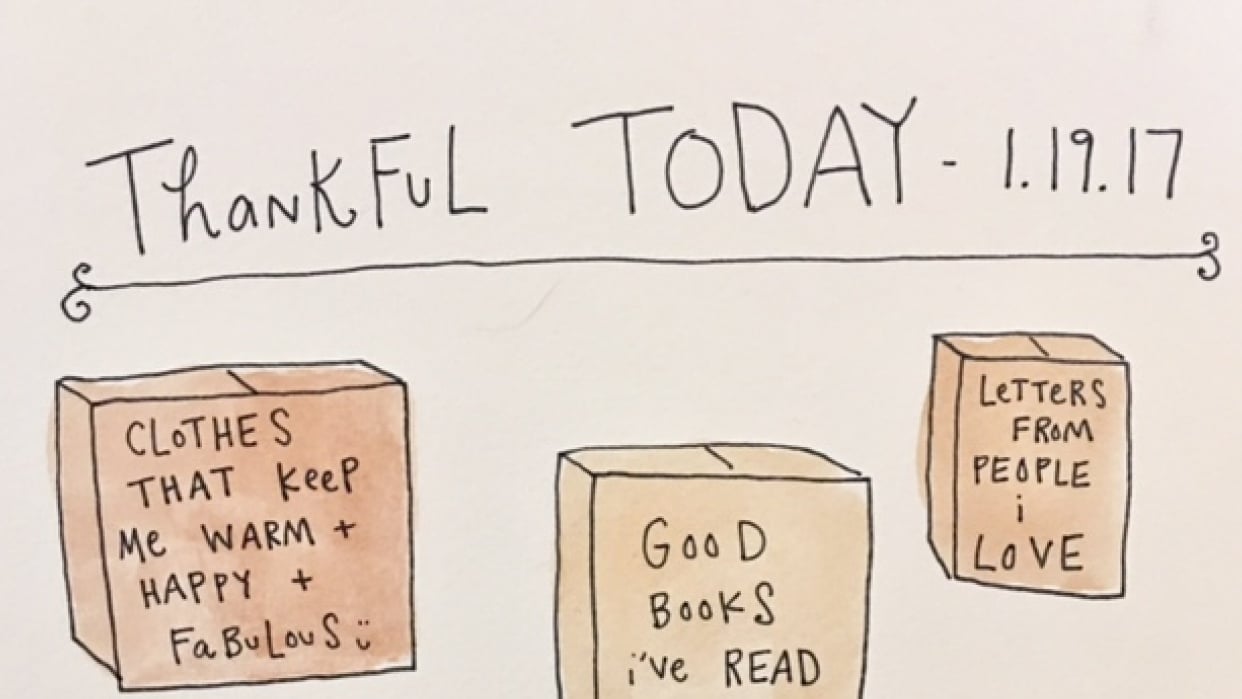 Thankful TODAY - 1.19.17
CLoTHES
THAT KeeP
Me WARM +
HAPPY +
FaBuLouS :)
GooD
BooKS
i've READ
LeTTeRS
FRoM
PEOPLE
i
LoVE